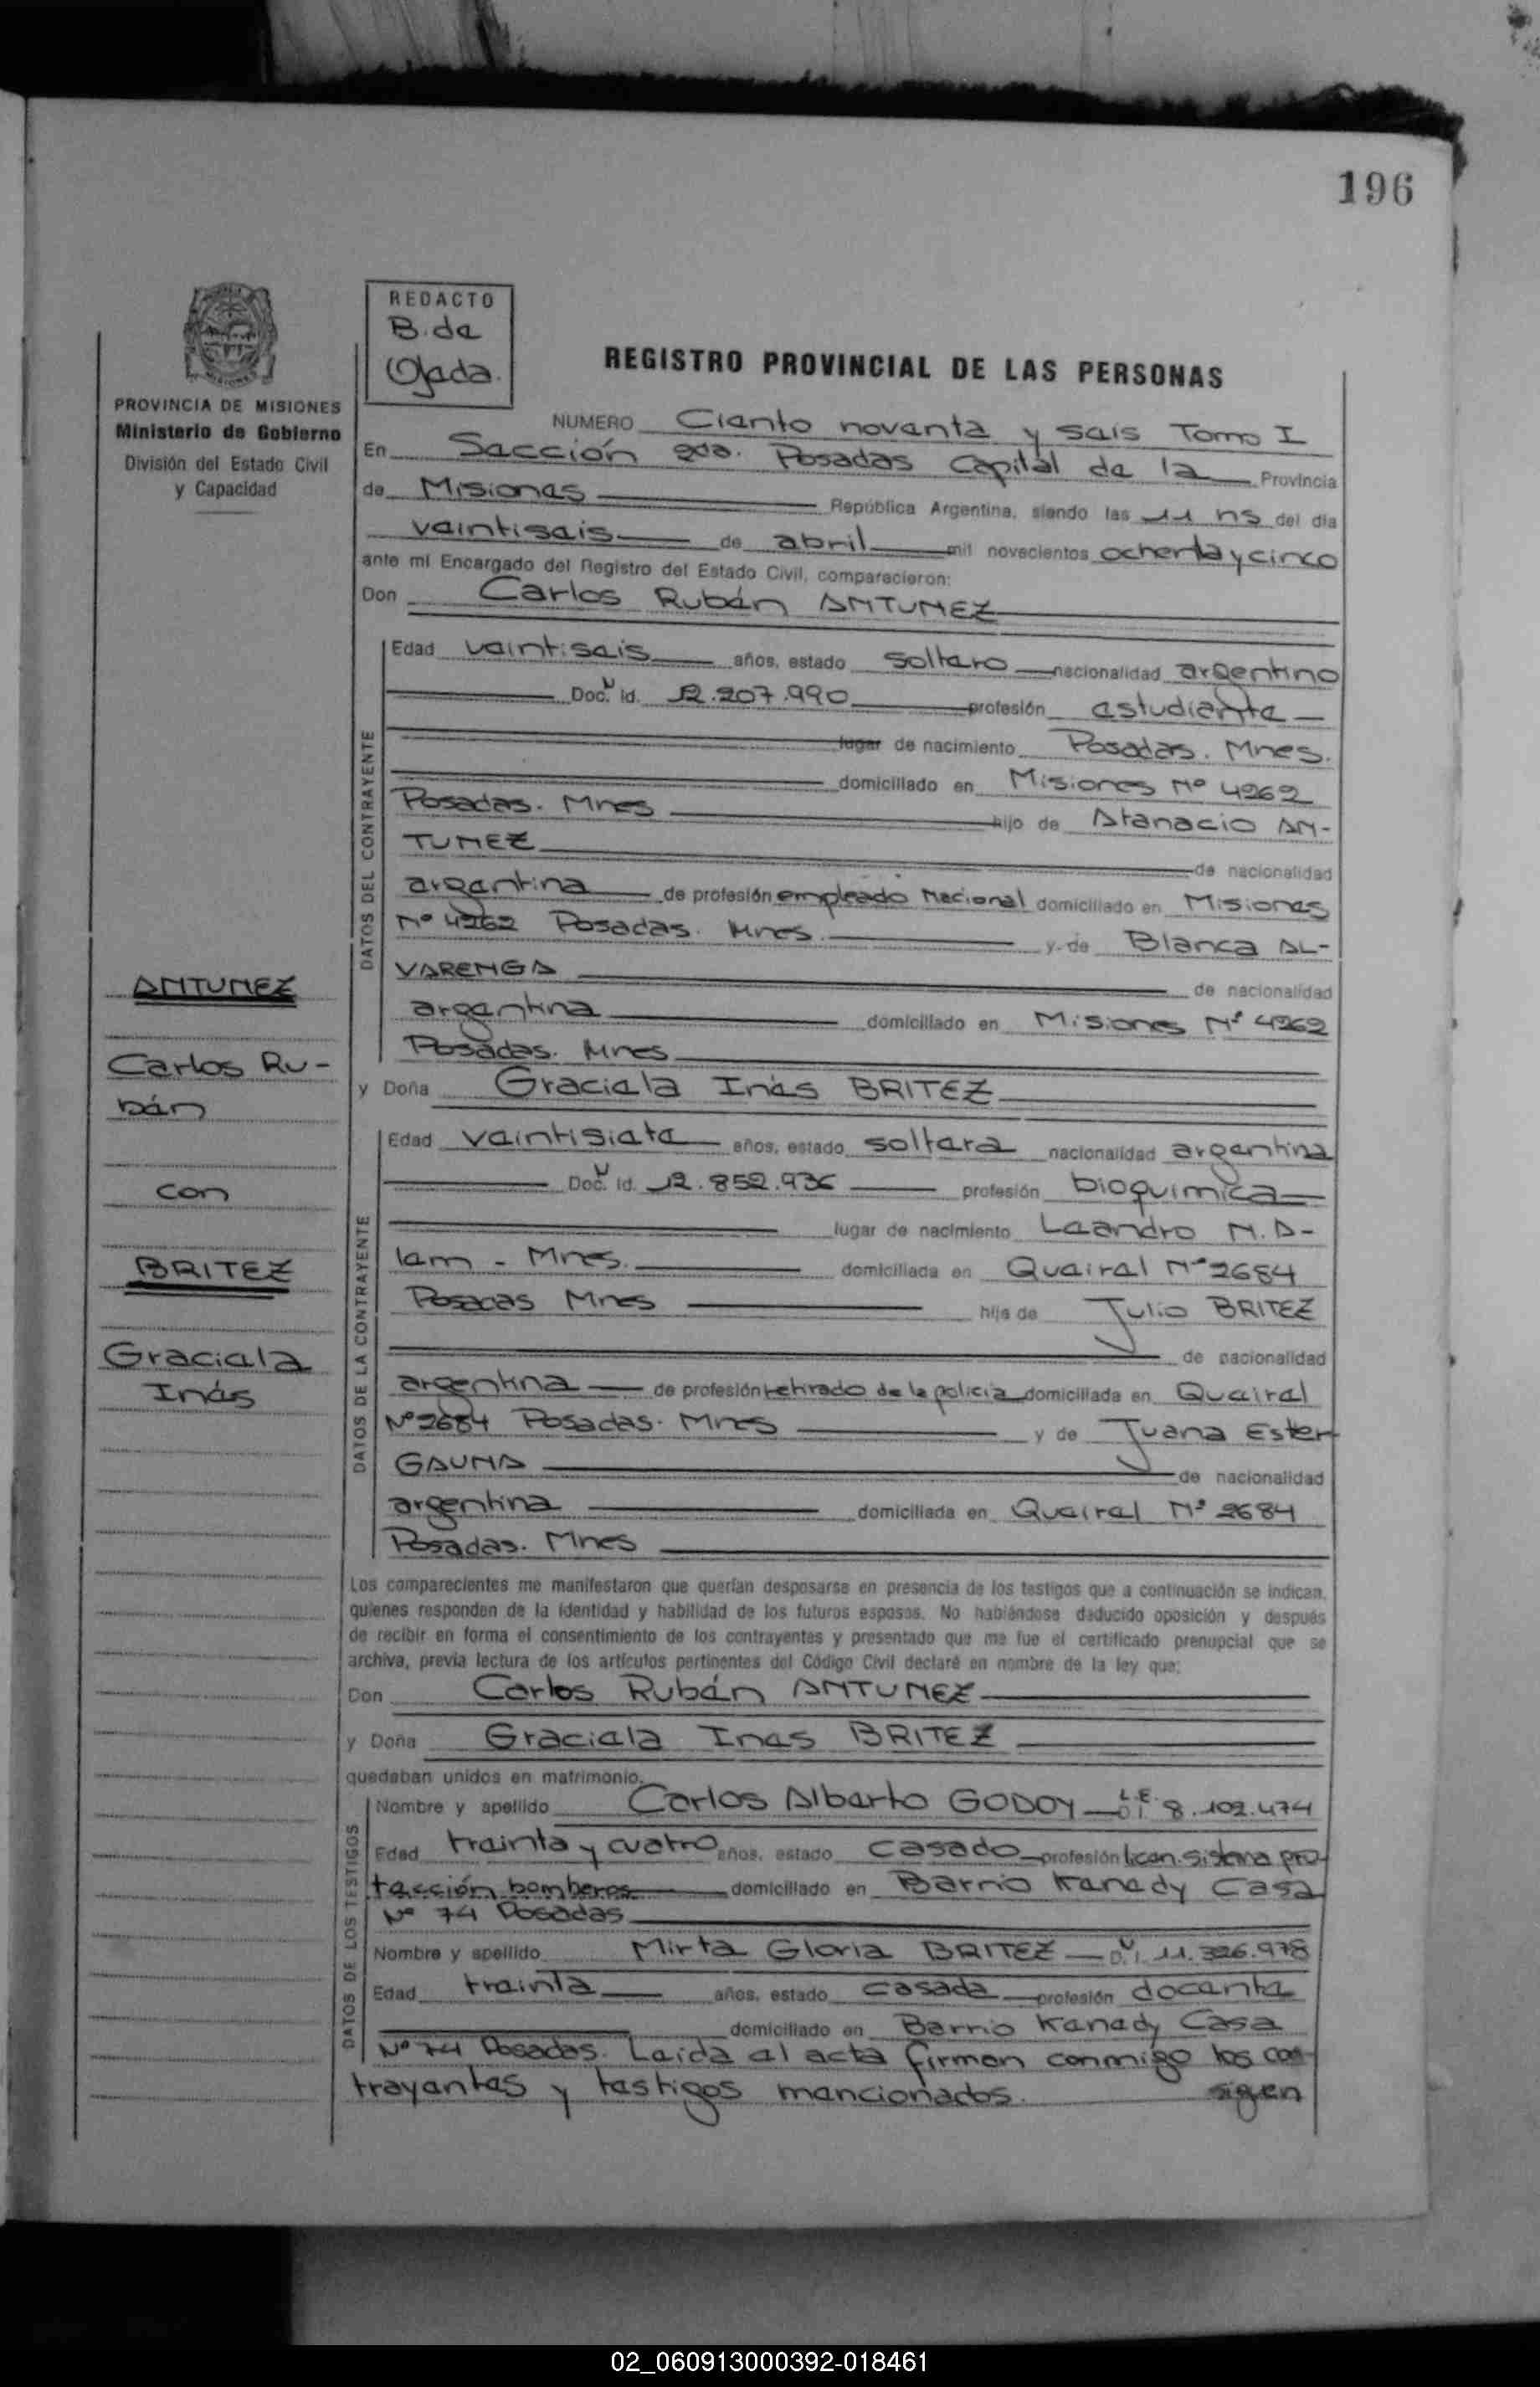 196
REDACTO
B. de
Ojeda.
PROVINCIA DE MISIONES
Ministerio de Gobierno
División del Estado Civil
y Capacidad
REGISTRO PROVINCIAL DE LAS PERSONAS
NUMERO Ciento noventa y seis Tomo I
En Sección 2da. Posadas Capital de la Provincia
de Misiones República Argentina, siendo las 11 hs del día
veintiseis de abril mil novecientos ochenta y cinco
ante mí Encargado del Registro del Estado Civil, comparecieron:
Don Carlos Rubén ANTUNEZ
DATOS DEL CONTRAYENTE
Edad veintiseis años, estado soltero nacionalidad argentino
Doc. Id. 12.207.990 profesión estudiante
lugar de nacimiento Posadas. Mnes.
domiciliado en Misiones Nº 4262
Posadas. Mnes hijo de Atanacio AN-
TUNEZ de nacionalidad
argentina de profesión empleado Nacional domiciliado en Misiones
Nº 4262 Posadas. Mnes. y de Blanca AL-
VARENGA de nacionalidad
argentina domiciliado en Misiones Nº 4262
Posadas. Mnes
y Doña Graciela Inés BRITEZ
DATOS DE LA CONTRAYENTE
Edad veintisiete años, estado soltera nacionalidad argentina
Doc. Id. 12.852.936 profesión bioquimica
lugar de nacimiento Leandro N. A-
lem - Mnes. domiciliada en Quairal Nº 2684
Posadas Mnes hija de Julio BRITEZ
de nacionalidad
argentina de profesión retirado de la policia domiciliada en Quairal
Nº 2684 Posadas. Mnes y de Juana Ester
GAUNA de nacionalidad
argentina domiciliada en Quairal Nº 2684
Posadas. Mnes
Los comparecientes me manifestaron que querían desposarse en presencia de los testigos que a continuación se indican,
quienes responden de la identidad y habilidad de los futuros esposos. No habiéndose deducido oposición y después
de recibir en forma el consentimiento de los contrayentes y presentado que me fue el certificado prenupcial que se
archiva, previa lectura de los artículos pertinentes del Código Civil declaré en nombre de la ley que:
Don Carlos Rubén ANTUNEZ
y Doña Graciela Ines BRITEZ
quedaban unidos en matrimonio.
DATOS DE LOS TESTIGOS
Nombre y apellido Carlos Alberto GODOY L.E. 8.102.474
Edad treinta y cuatro años, estado casado profesión licen. sistema pro-
tección bomberos domiciliado en Barrio Kenedy Casa
Nº 74 Posadas
Nombre y apellido Mirta Gloria BRITEZ 11.326.978
Edad treinta años, estado casada profesión docente
domiciliado en Barrio Kenedy Casa
Nº 74 Posadas. Leida el acta firman conmigo los con-
trayentes y testigos mencionados. sigen
ANTUNEZ
Carlos Ru-
bén
con
BRITEZ
Graciela
Inés
02_060913000392-018461